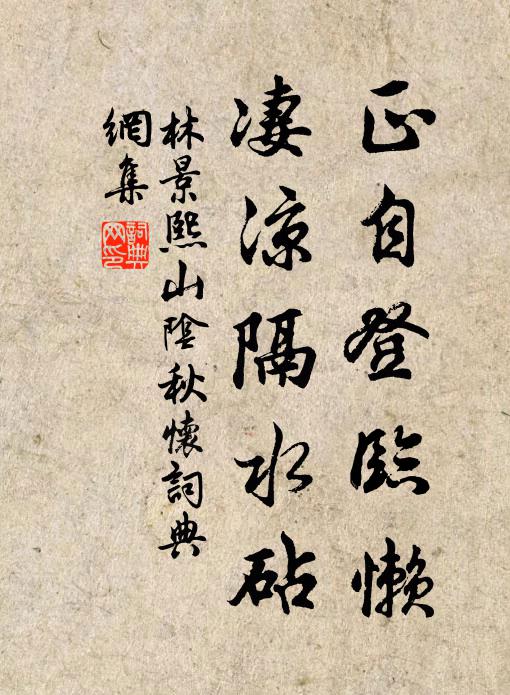 正自登臨懶
凄凉隔水砧
林景熙山陰秋懷詞典
網集
詞典
网印